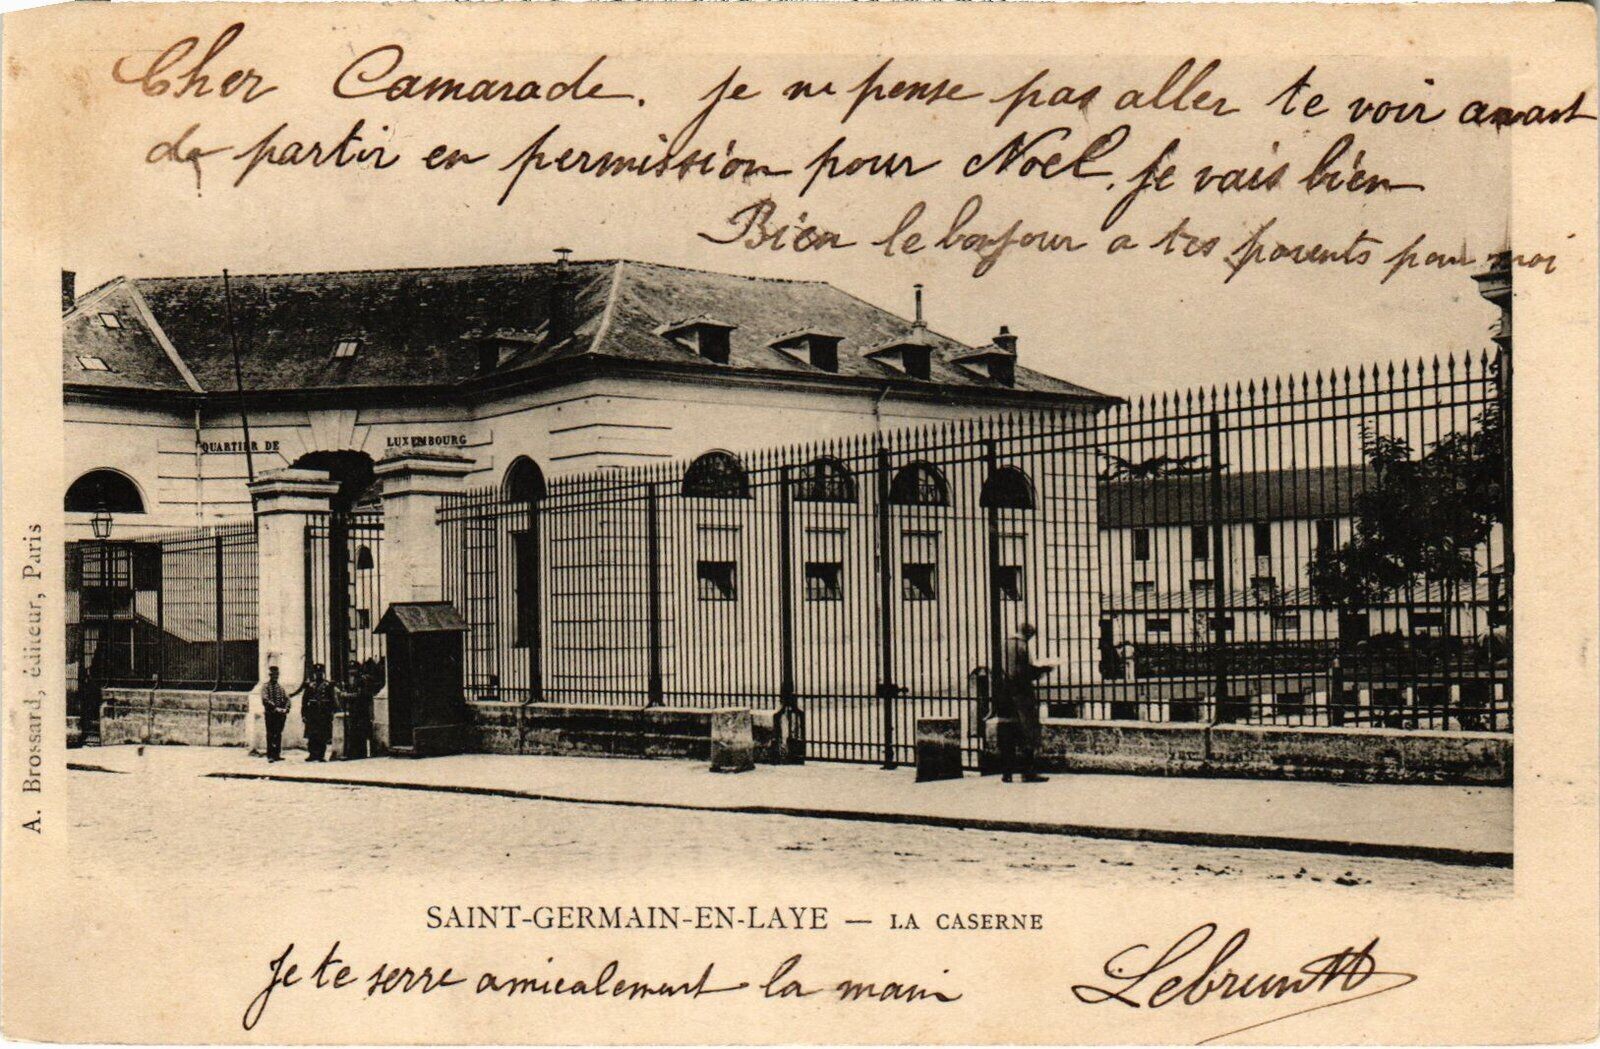 Cher Camarade. je ne pense pas aller te voir avant
de partir en permission pour Noel. je vais bien
Bien le bonjour a tes parents pour moi
QUARTIER DE LUXEMBOURG
A. Brossard, éditeur, Paris
SAINT-GERMAIN-EN-LAYE — LA CASERNE
Je te serre amicalement la main
Lebrun